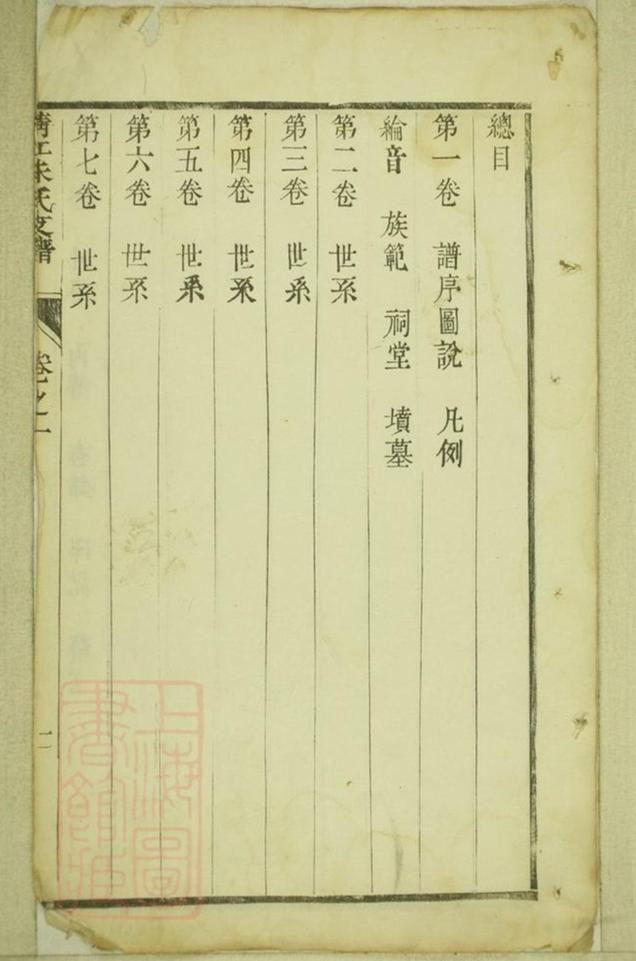 總目
第一卷 譜序圖說 凡例
綸音 族範 祠堂 墳墓
第二卷 世系
第三卷 世系
第四卷 世系
第五卷 世系
第六卷 世系
第七卷 世系
清江朱氏支譜 卷之一 一
上海圖書館藏